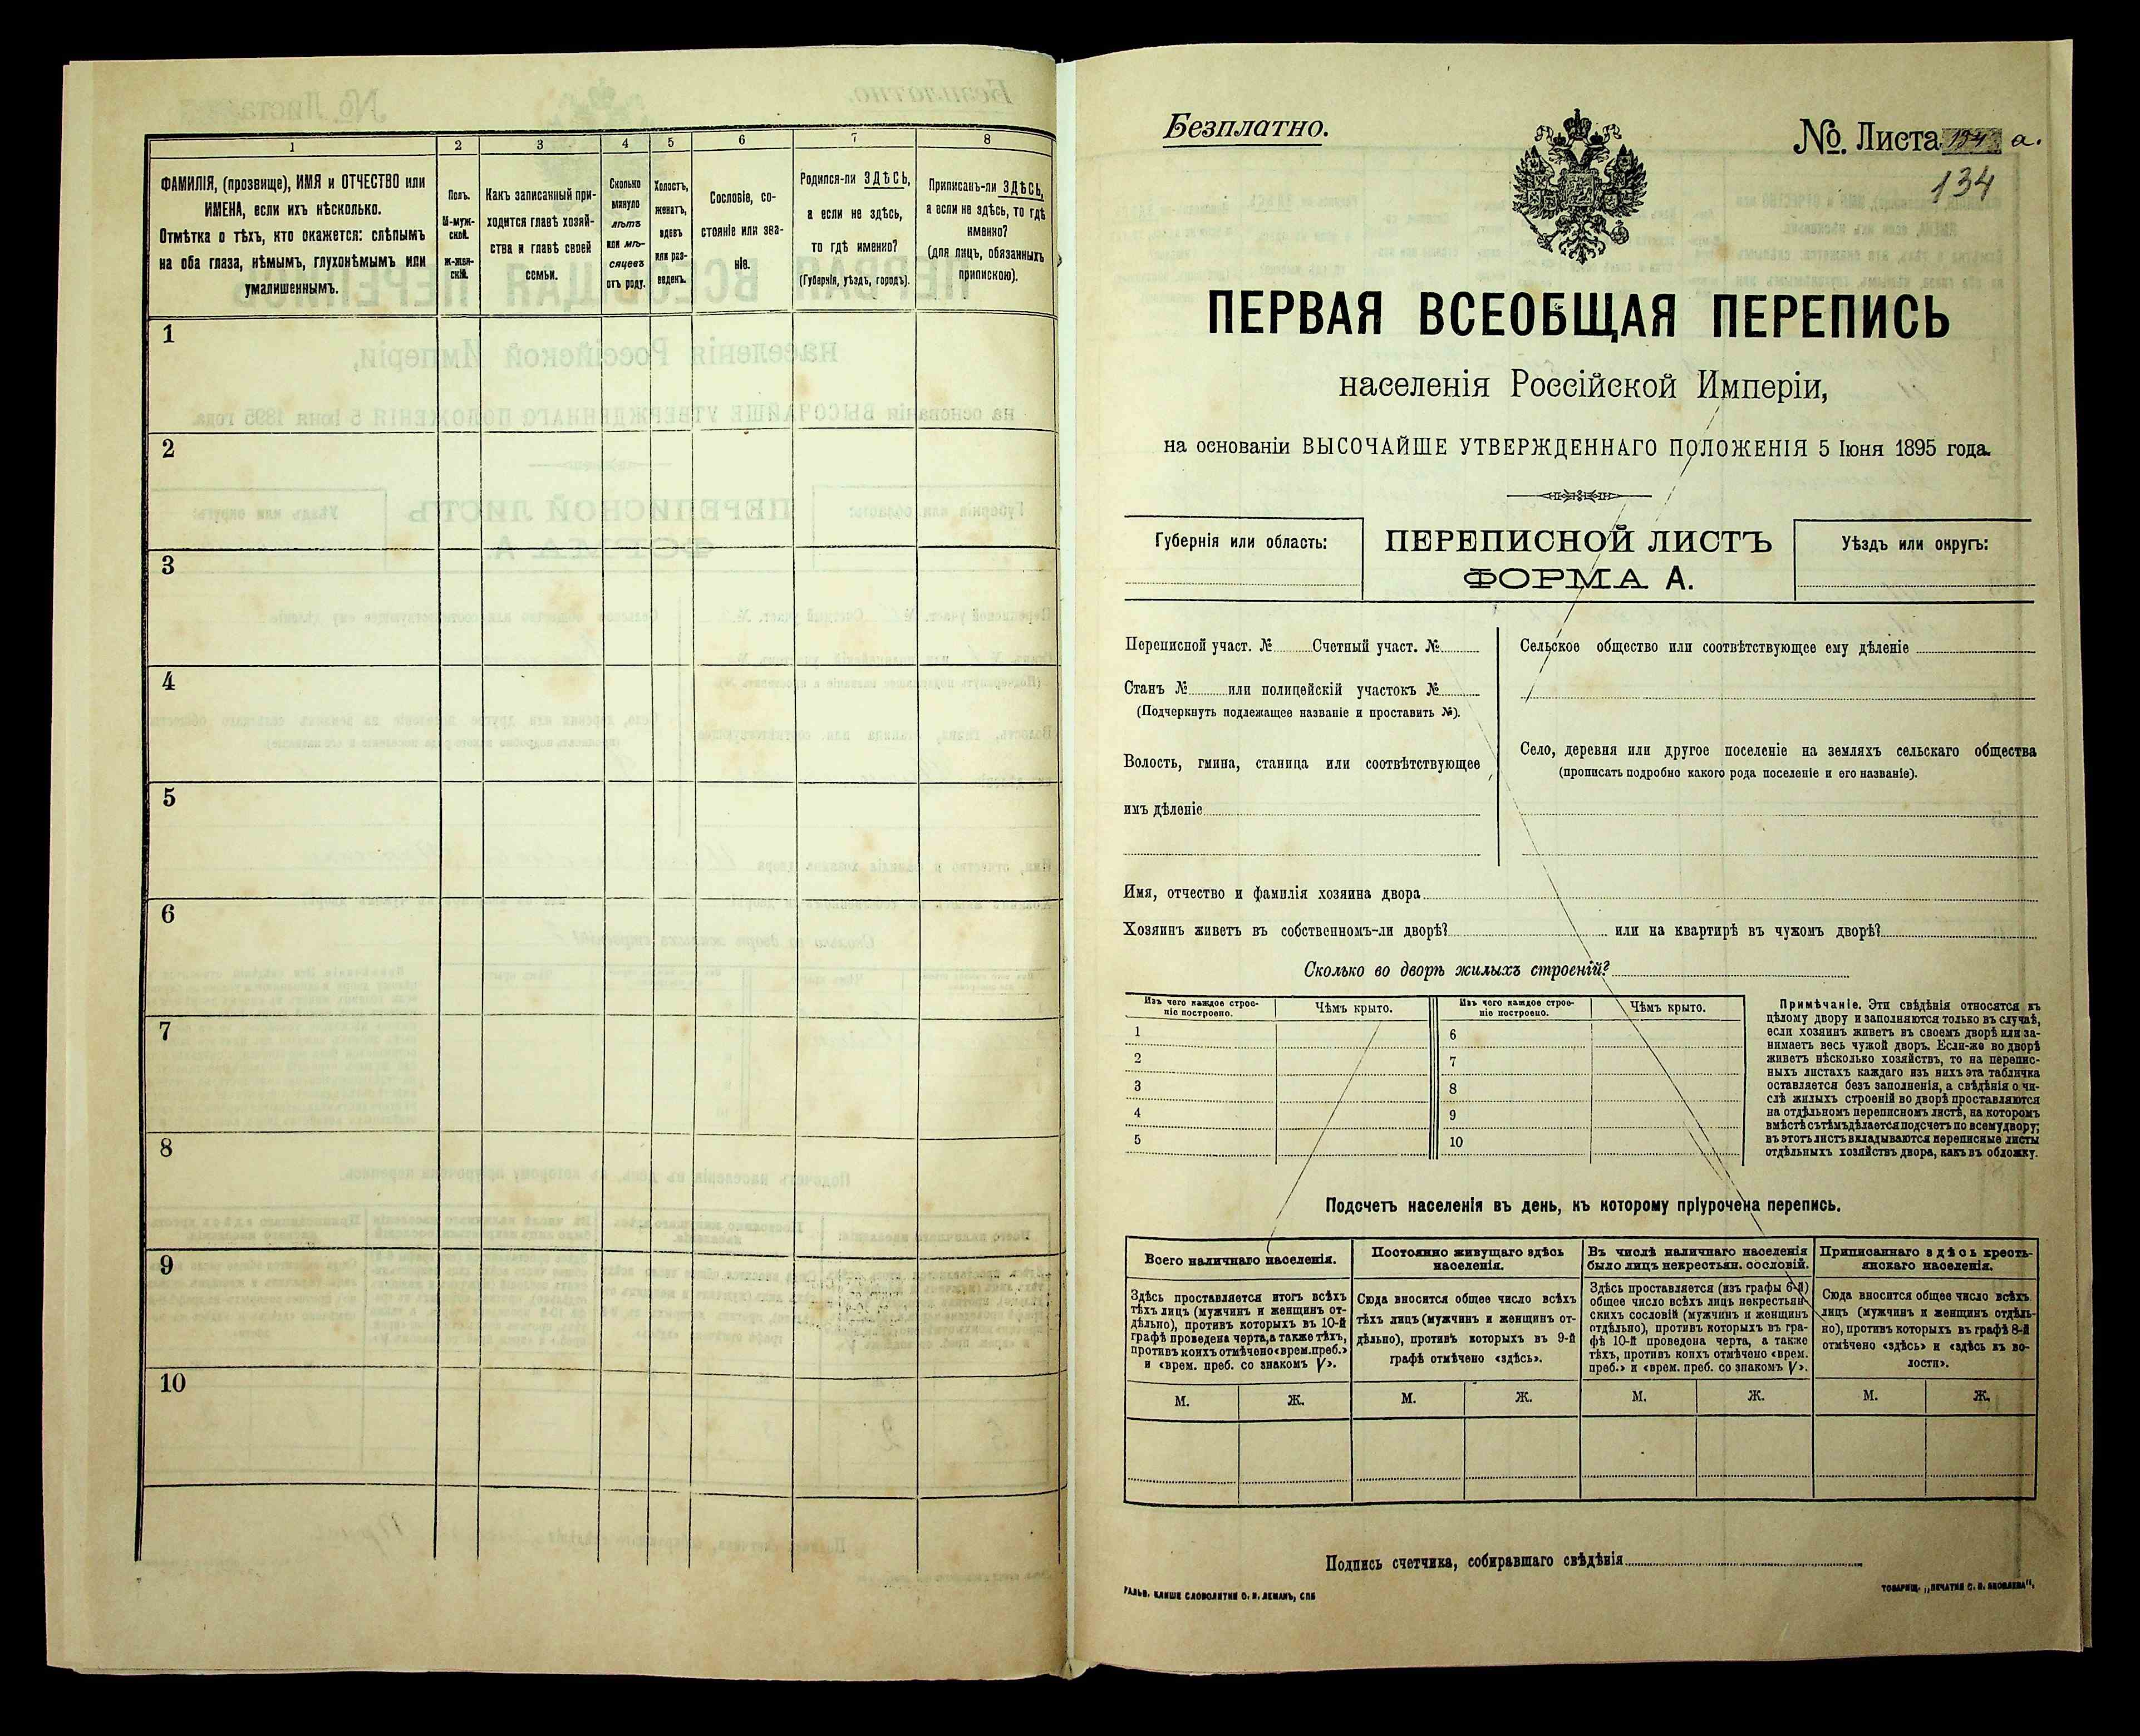 1
2
3
4
5
6
7
8
ФАМИЛІЯ, (прозвище), ИМЯ и ОТЧЕСТВО или
ИМЕНА, если ихъ нѣсколько.
Отмѣтка о тѣхъ, кто окажется: слѣпымъ
на оба глаза, нѣмымъ, глухонѣмымъ или
умалишеннымъ.
Полъ.
М-муж-
ской.
ж-жен-
скій.
Какъ записанный при-
ходится главѣ хозяй-
ства и главѣ своей
семьи.
Сколько
минуло
лѣтъ
или мѣ-
сяцевъ
отъ роду.
Холостъ,
женатъ,
вдовъ
или раз-
веденъ.
Сословіе, со-
стояніе или зва-
ніе.
Родился-ли ЗДѢСЬ,
а если не здѣсь,
то гдѣ именно?
(Губернія, уѣздъ, городъ).
Приписанъ-ли ЗДѢСЬ,
а если не здѣсь, то гдѣ
именно?
(для лицъ, обязанныхъ
припискою).
1
2
3
4
5
6
7
8
9
10
Безплатно.
№ Листа 134 а.
134
ПЕРВАЯ ВСЕОБЩАЯ ПЕРЕПИСЬ
населенія Россійской Имперіи,
на основаніи ВЫСОЧАЙШЕ УТВЕРЖДЕННАГО ПОЛОЖЕНІЯ 5 Іюня 1895 года.
Губернія или область:
ПЕРЕПИСНОЙ ЛИСТЪ
ФОРМА А.
Уѣздъ или округъ:
Переписной участ. № Счетный участ. №
Станъ № или полицейскій участокъ №
(Подчеркнуть подлежащее названіе и проставить №).
Волость, гмина, станица или соотвѣтствующее
имъ дѣленіе
Сельское общество или соотвѣтствующее ему дѣленіе
Село, деревня или другое поселеніе на земляхъ сельскаго общества
(прописать подробно какого рода поселеніе и его названіе).
Имя, отчество и фамилія хозяина двора
Хозяинъ живетъ въ собственномъ-ли дворѣ? или на квартирѣ въ чужомъ дворѣ?
Сколько во дворѣ жилыхъ строеній?
Изъ чего каждое строе-
ніе построено.
Чѣмъ крыто.
Изъ чего каждое строе-
ніе построено.
Чѣмъ крыто.
1
2
3
4
5
6
7
8
9
10
Примѣчаніе. Эти свѣдѣнія относятся къ
цѣлому двору и заполняются только въ случаѣ,
если хозяинъ живетъ въ своемъ дворѣ или за-
нимаетъ весь чужой дворъ. Если-же во дворѣ
живетъ нѣсколько хозяйствъ, то на перепис-
ныхъ листахъ каждаго изъ нихъ эта табличка
оставляется безъ заполненія, а свѣдѣнія о чи-
слѣ жилыхъ строеній во дворѣ проставляются
на отдѣльномъ переписномъ листѣ, на которомъ
вмѣстѣ съ тѣмъ дѣлается подсчетъ по всему двору;
въ этотъ листъ вкладываются переписные листы
отдѣльныхъ хозяйствъ двора, какъ въ обложку.
Подсчетъ населенія въ день, къ которому пріурочена перепись.
Всего наличнаго населенія.
Постоянно живущаго здѣсь
населенія.
Въ числѣ наличнаго населенія
было лицъ некрестьян. сословій.
Приписаннаго здѣсь кресть-
янскаго населенія.
Здѣсь проставляется итогъ всѣхъ
тѣхъ лицъ (мужчинъ и женщинъ от-
дѣльно), противъ которыхъ въ 10-й
графѣ проведена черта, а также тѣхъ,
противъ коихъ отмѣчено «врем. преб.»
и «врем. преб. со знакомъ V».
Сюда вносится общее число всѣхъ
тѣхъ лицъ (мужчинъ и женщинъ от-
дѣльно), противъ которыхъ въ 9-й
графѣ отмѣчено «здѣсь».
Здѣсь проставляется (изъ графы 6-й)
общее число всѣхъ лицъ некрестьян-
скихъ сословій (мужчинъ и женщинъ
отдѣльно), противъ которыхъ въ гра-
фѣ 10-й проведена черта, а также
тѣхъ, противъ коихъ отмѣчено «врем.
преб.» и «врем. преб. со знакомъ V».
Сюда вносится общее число всѣхъ
лицъ (мужчинъ и женщинъ отдѣль-
но), противъ которыхъ въ графѣ 8-й
отмѣчено «здѣсь» и «здѣсь въ во-
лости».
М.
Ж.
М.
Ж.
М.
Ж.
М.
Ж.
Подпись счетчика, собиравшаго свѣдѣнія
ГАЛЬВ. КЛИШЕ СЛОВОЛИТНИ О. И. ЛЕМАНЪ, СПБ
ТОВАРИЩ. „ПЕЧАТНЯ С. П. ЯКОВЛЕВА".